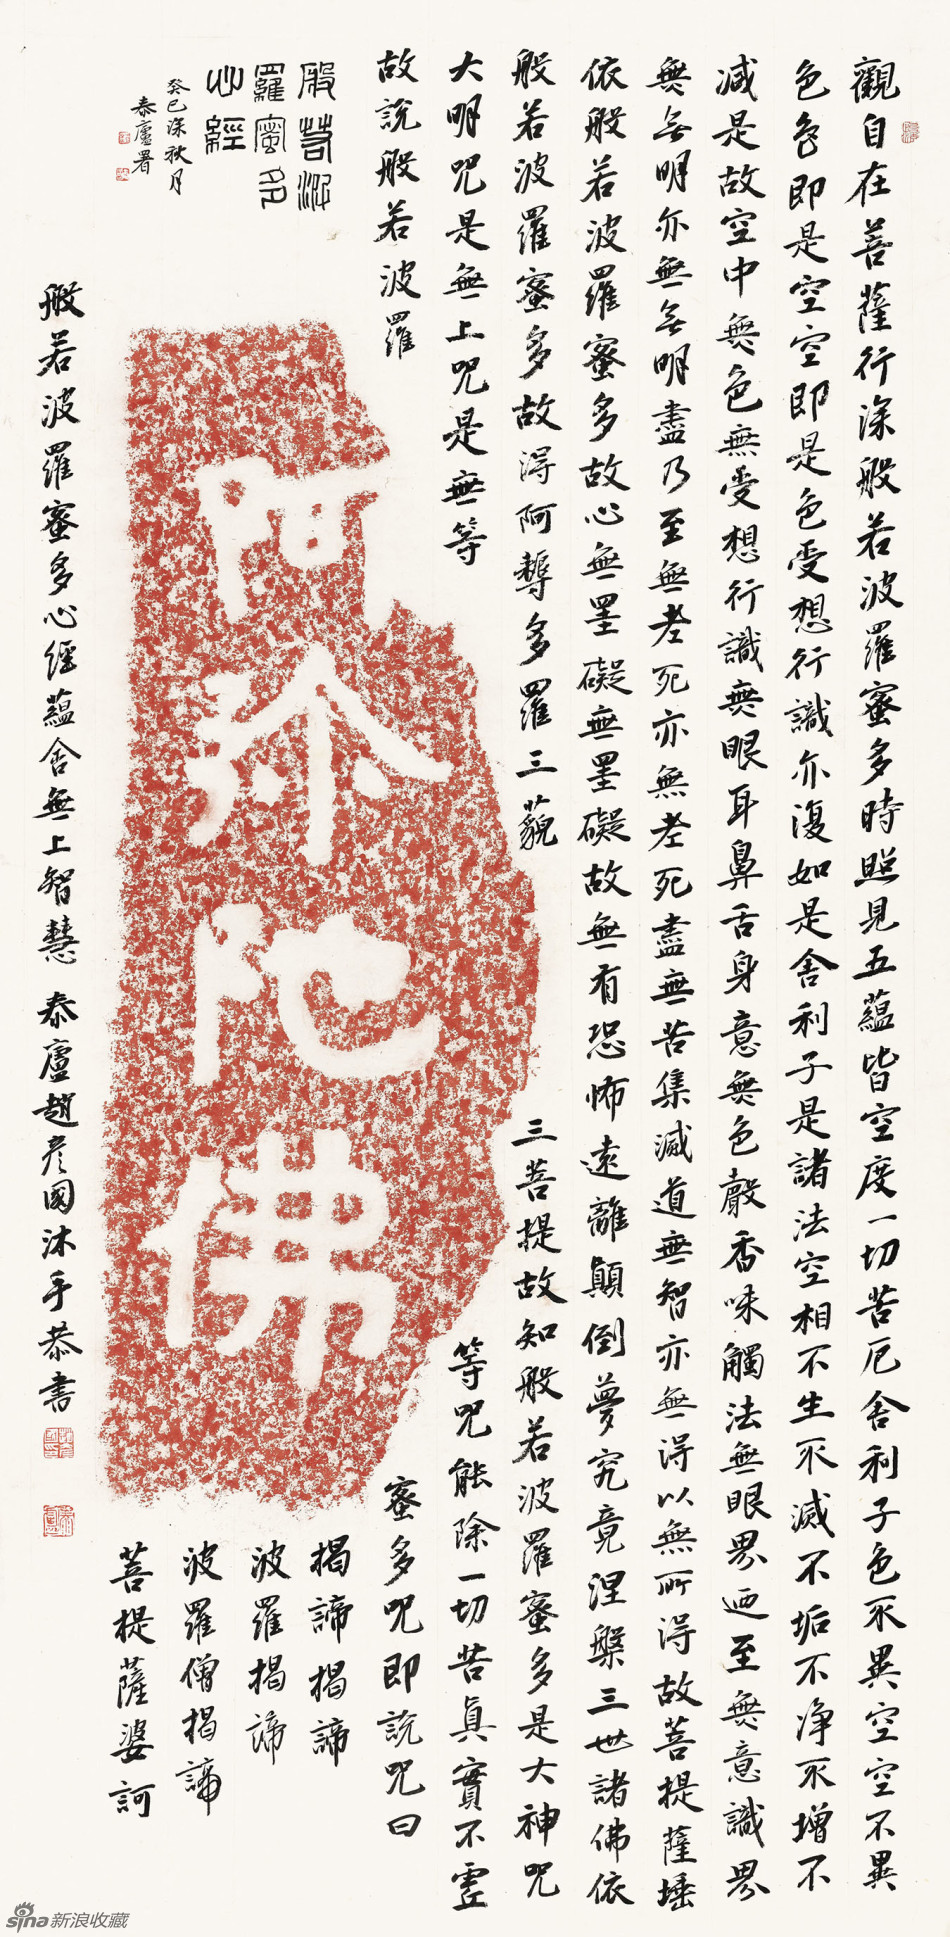 觀自在菩薩行深般若波羅蜜多時照見五蘊皆空度一切苦厄舍利子色不異空空不異
色色即是空空即是色受想行識亦復如是舍利子是諸法空相不生不滅不垢不淨不增不
減是故空中無色無受想行識無眼耳鼻舌身意無色聲香味觸法無眼界迺至無意識界
無無明亦無無明盡乃至無老死亦無老死盡無苦集滅道無智亦無得以無所得故菩提薩埵
依般若波羅蜜多故心無罣礙無罣礙故無有恐怖遠離顛倒夢究竟涅槃三世諸佛依
般若波羅蜜多故得阿耨多羅三藐 三菩提故知般若波羅蜜多是大神咒
大明咒是無上咒是無等 等咒能除一切苦真實不虛
故說般若波羅 蜜多咒即說咒曰
揭諦揭諦
波羅揭諦
波羅僧揭諦
菩提薩婆訶
般若波
羅蜜多
心經
癸巳深秋月
泰廬署
阿弥陀佛
般若波羅蜜多心經蘊含無上智慧 泰廬趙彥國沐手恭書
sina新浪收藏